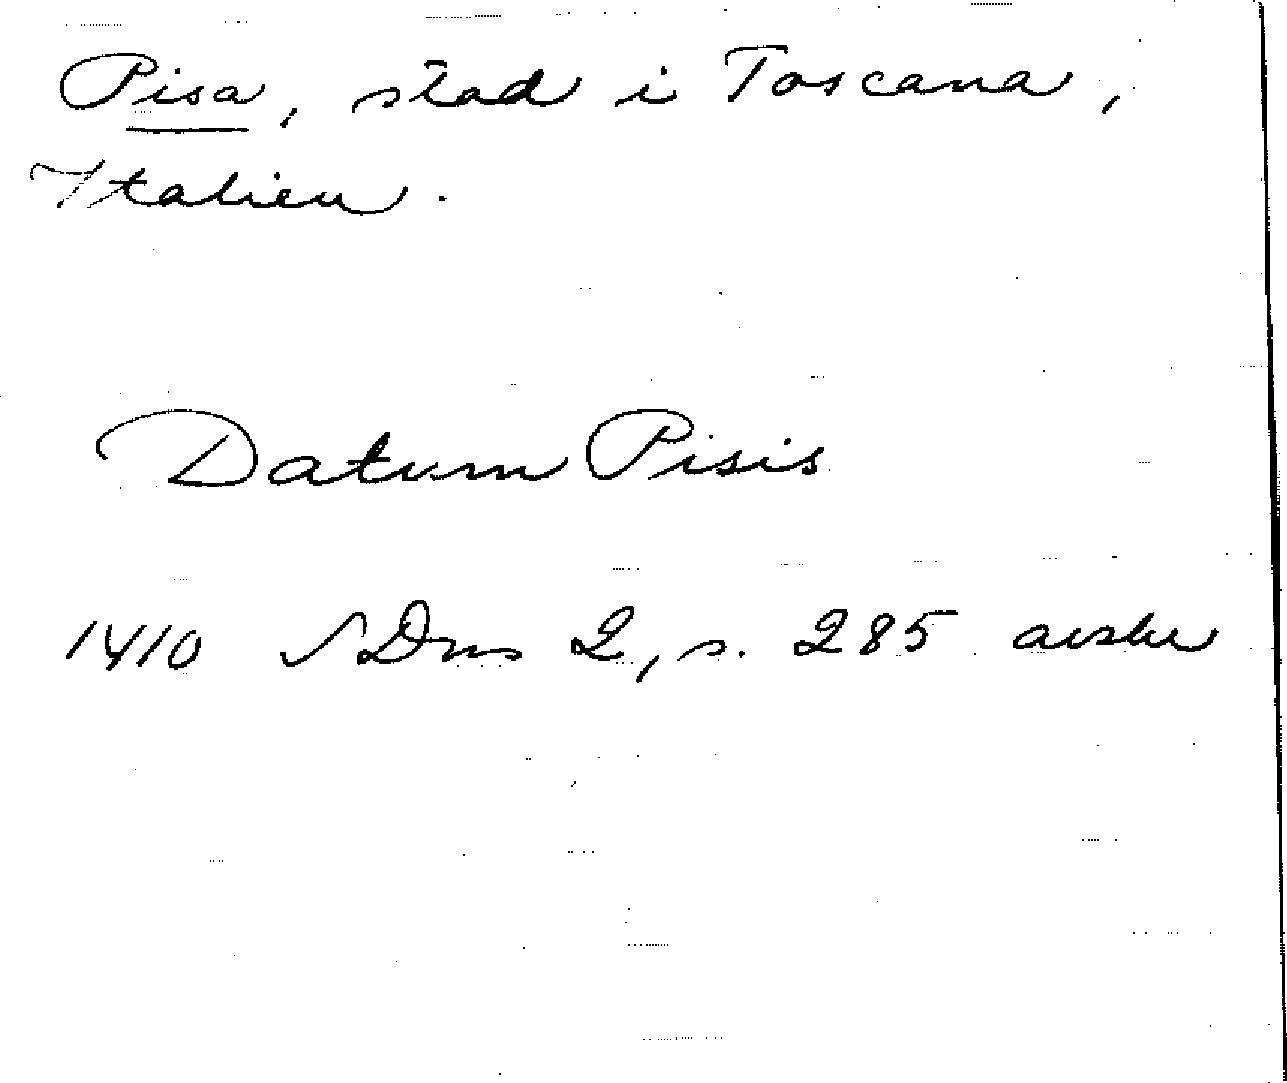 Pisa, stad i Toscana,
Italien.
Datum Pisis
1410 SDns 2, s. 285 avskr